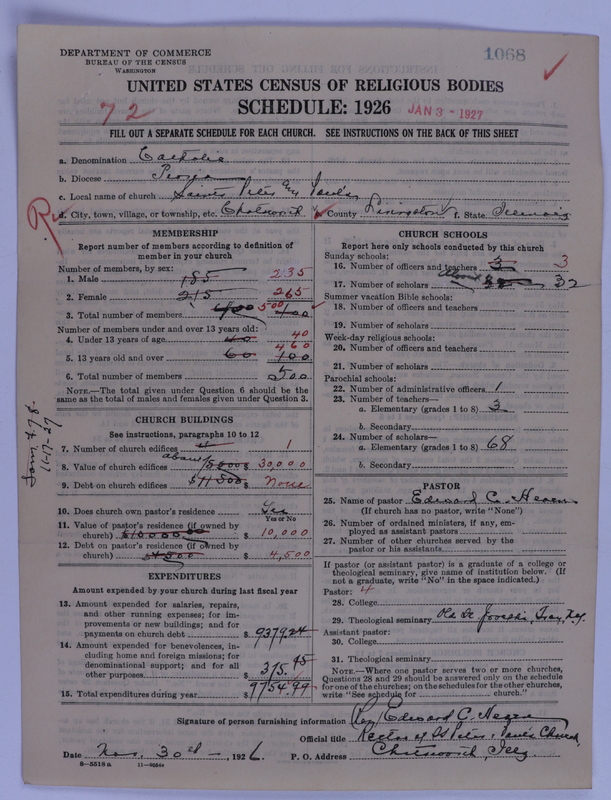 DEPARTMENT OF COMMERCE
BUREAU OF THE CENSUS
WASHINGTON
1068
UNITED STATES CENSUS OF RELIGIOUS BODIES
72
SCHEDULE: 1926
JAN 3 - 1927
FILL OUT A SEPARATE SCHEDULE FOR EACH CHURCH. SEE INSTRUCTIONS ON THE BACK OF THIS SHEET
a. Denomination Catholic
b. Diocese Peoria
c. Local name of church Saints Peter and Paul's
d. City, town, village, or township, etc. Chatsworth County Livingston f. State Illinois
MEMBERSHIP
Report number of members according to definition of
member in your church
Number of members, by sex:
1. Male 185 235
2. Female 215 265
3. Total number of members 400 500 400
Number of members under and over 13 years old:
4. Under 13 years of age 40 40
460
5. 13 years old and over 60 100
6. Total number of members 500
NOTE.—The total given under Question 6 should be the
same as the total of males and females given under Question 3.
CHURCH BUILDINGS
See instructions, paragraphs 10 to 12
7. Number of church edifices 1
about
8. Value of church edifices $ 30,000
9. Debt on church edifices $11500 None
10. Does church own pastor's residence Yes
Yes or No
11. Value of pastor's residence (if owned by
church) $10000.00 $ 10,000
12. Debt on pastor's residence (if owned by
church) $4500 $ 4,500
EXPENDITURES
Amount expended by your church during last fiscal year
13. Amount expended for salaries, repairs,
and other running expenses; for im-
provements or new buildings; and for
payments on church debt $ 9379.24
14. Amount expended for benevolences, in-
cluding home and foreign missions; for
denominational support; and for all
other purposes $ 375.45
15. Total expenditures during year $ 9754.99
CHURCH SCHOOLS
Report here only schools conducted by this church
Sunday schools:
16. Number of officers and teachers 3 3
17. Number of scholars 32
Summer vacation Bible schools:
18. Number of officers and teachers
19. Number of scholars
Week-day religious schools:
20. Number of officers and teachers
21. Number of scholars
Parochial schools:
22. Number of administrative officers 1
23. Number of teachers—
a. Elementary (grades 1 to 8) 3
b. Secondary
24. Number of scholars—
a. Elementary (grades 1 to 8) 68
b. Secondary
PASTOR
25. Name of pastor Edward C. Hearn
(If church has no pastor, write "None")
26. Number of ordained ministers, if any, em-
ployed as assistant pastors
27. Number of other churches served by the
pastor or his assistants
If pastor (or assistant pastor) is a graduate of a college or
theological seminary, give name of institution below. (If
not a graduate, write "No" in the space indicated.)
Pastor: 4
28. College
29. Theological seminary Old St Josephs Troy, N.Y.
Assistant pastor:
30. College
31. Theological seminary
NOTE.—Where one pastor serves two or more churches,
Questions 28 and 29 should be answered only on the schedule
for one of the churches; on the schedules for the other churches,
write "See schedule for church."
Signature of person furnishing information Rev. Edward C. Hearn
Official title Rector of SS Peter & Paul's Church
Date Nov. 30th, 1926. P. O. Address Chatsworth, Ills.
8-5518a 11-9554
11-17-27